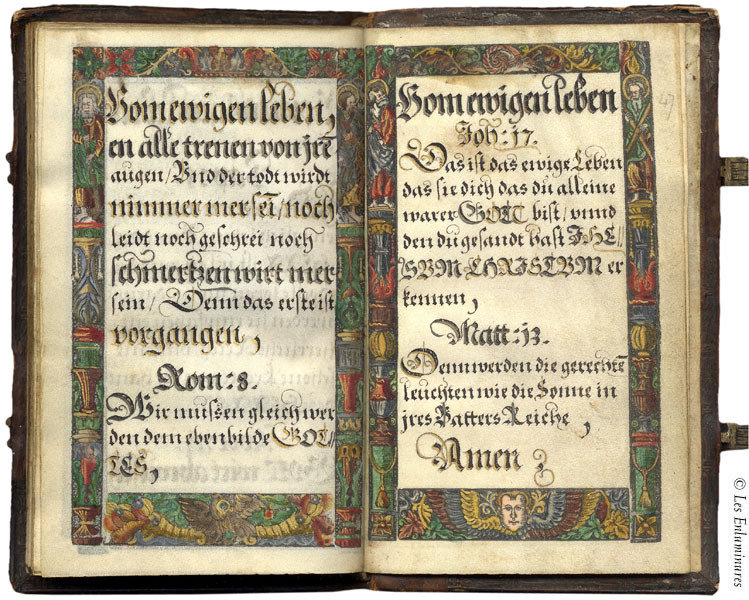 Vom ewigen leben,
en alle trenen von jrē
augen / Vnd der todt wirdt
nimmer mer sei / noch
leidt noch geschrei noch
schmertzen wirt mer
sein / Denn das erste ist
vorgangen,
Rom: 8.
Wir mussen gleich wer
den dem ebenbilde GOT
TES,
Vom ewigen leben
47
Joh: 17.
Das ist das ewige Leben
das sie dich das du alleine
warer GOTT bist / vnnd
den du gesandt hast JHE//
SVM CHRISTVM er
kennen,
Matt: 13.
Denn werden die gerechtē
leuchten wie die Sonne in
jres Vatters Reiche,
Amen
© Les Enluminures